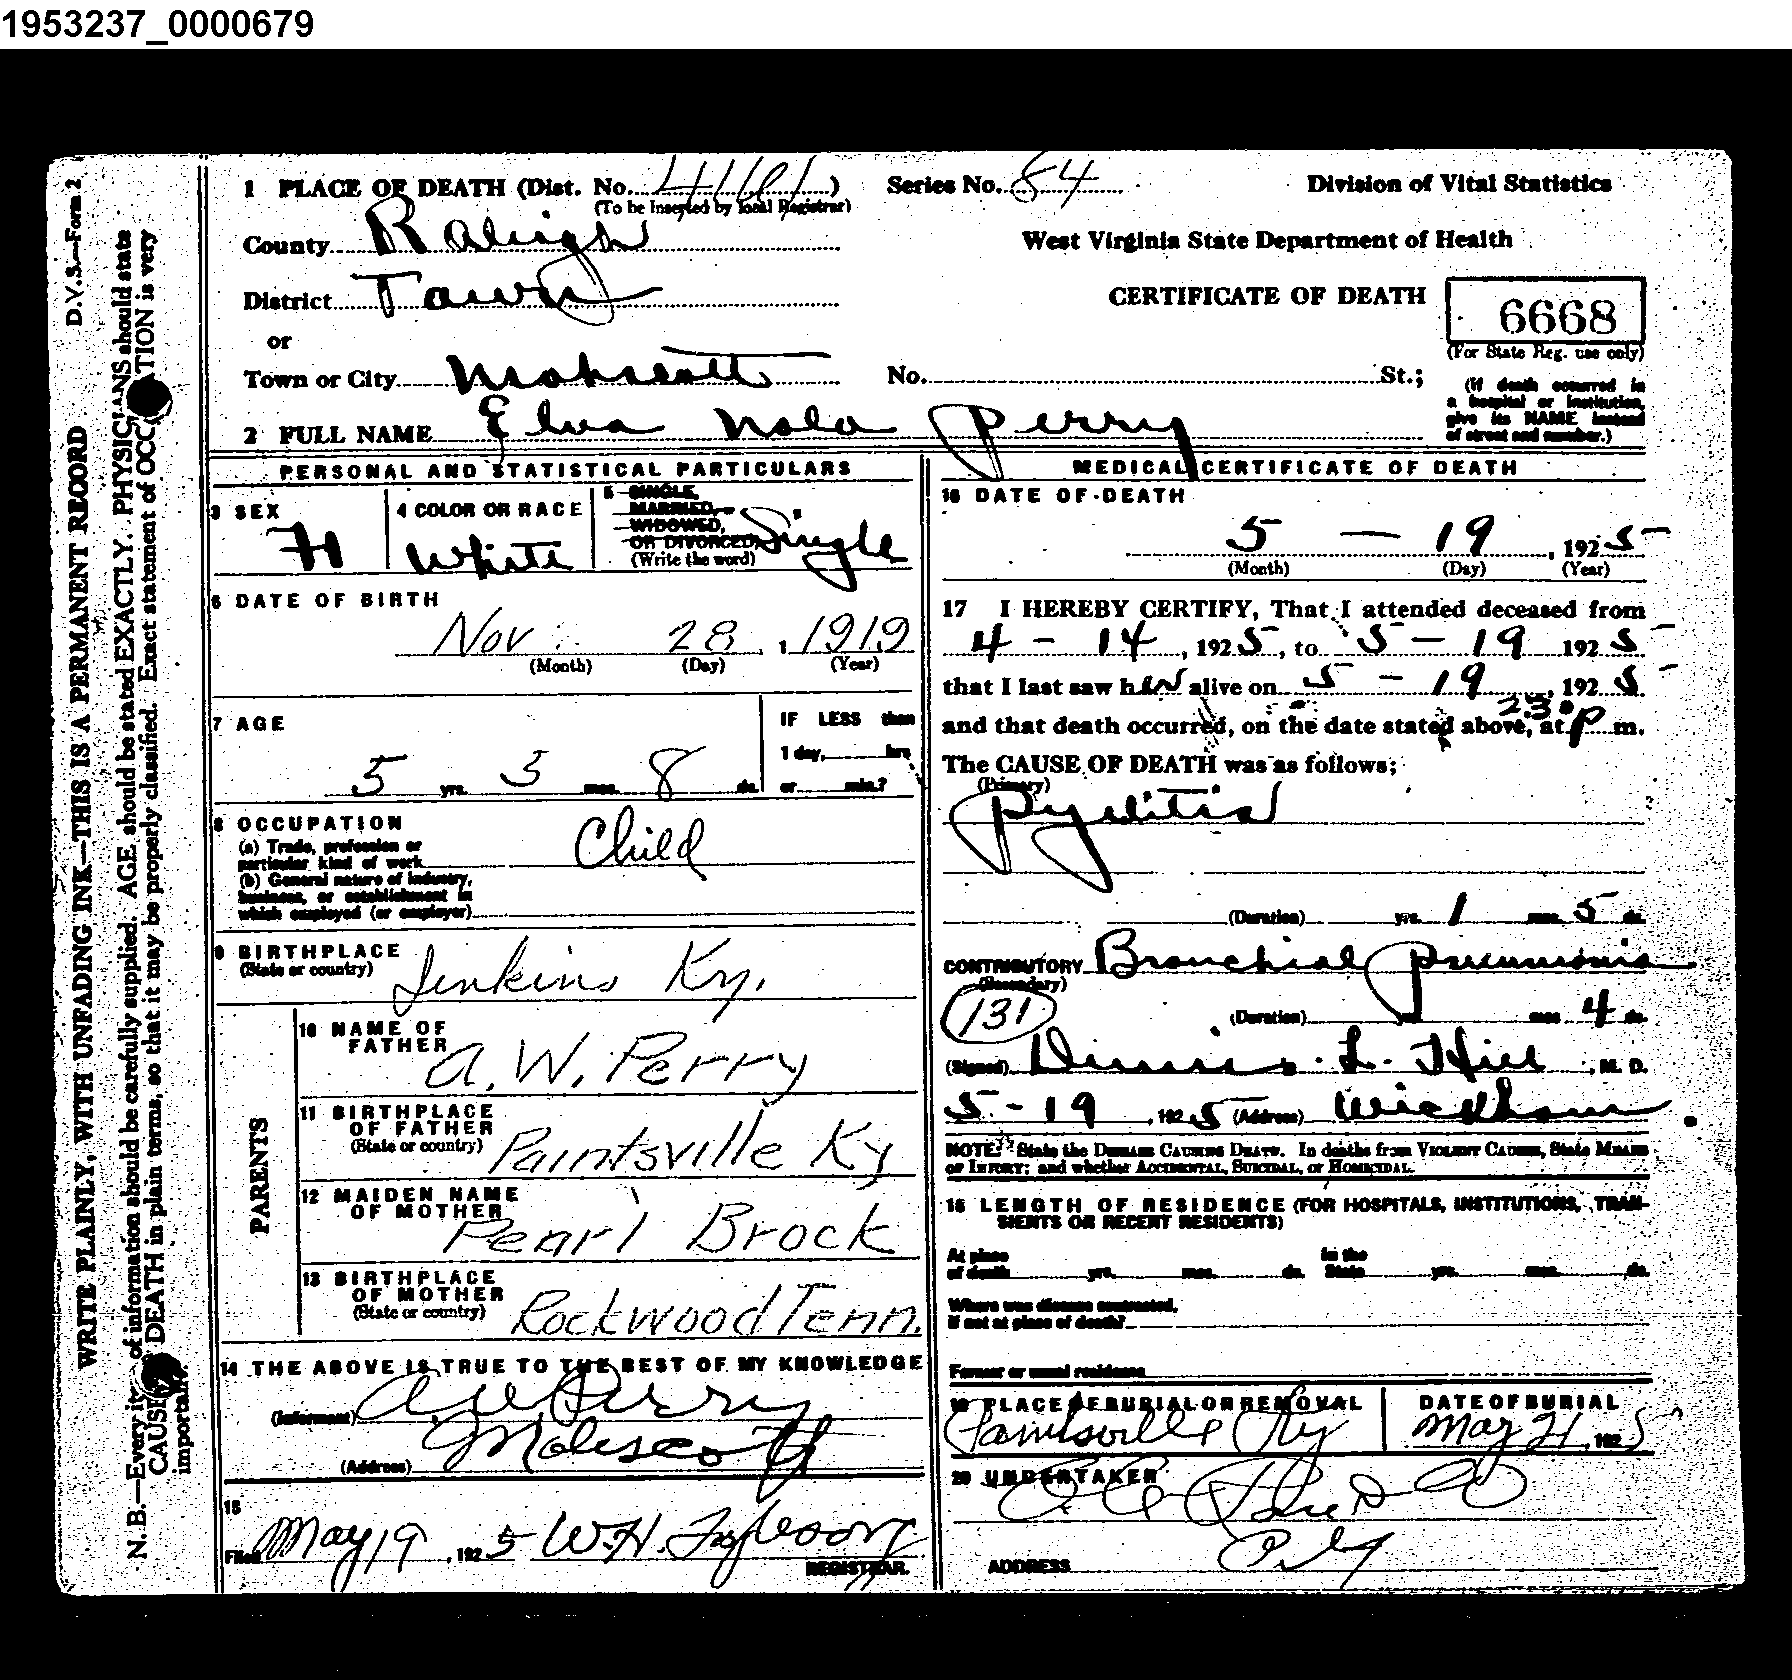 1953237_0000679
D.V.S.—Form 2
WRITE PLAINLY, WITH UNFADING INK—THIS IS A PERMANENT RECORD
N. B.—Every item of information should be carefully supplied. AGE should be stated EXACTLY. PHYSICIANS should state
CAUSE DEATH in plain terms, so that it may be properly classified. Exact statement of OCCUPATION is very
important.
1 PLACE OF DEATH (Dist. No. 4101) Series No. 84 Division of Vital Statistics
(To be inserted by local Registrar)
County Raleigh
West Virginia State Department of Health
District Town
CERTIFICATE OF DEATH 6668
or
(For State Reg. use only)
Town or City No. St.;
(If death occurred in
a hospital or institution,
give its NAME instead
of street and number.)
2 FULL NAME Elva Nola Perry
PERSONAL AND STATISTICAL PARTICULARS
3 SEX
4 COLOR OR RACE White
5 SINGLE,
MARRIED,
WIDOWED,
OR DIVORCED Single
(Write the word)
6 DATE OF BIRTH
Nov. 28, 1919
(Month) (Day) (Year)
7 AGE
IF LESS than
1 day, hrs.
5 yrs. 5 mos. 8 ds. or min.?
8 OCCUPATION
(a) Trade, profession or
particular kind of work Child
(b) General nature of industry,
business, or establishment in
which employed (or employer)
9 BIRTHPLACE
(State or country) Jenkins Ky.
PARENTS
10 NAME OF
FATHER A. W. Perry
11 BIRTHPLACE
OF FATHER
(State or country) Paintsville Ky
12 MAIDEN NAME
OF MOTHER Pearl Brock
13 BIRTHPLACE
OF MOTHER
(State or country) Rockwood Tenn.
14 THE ABOVE IS TRUE TO THE BEST OF MY KNOWLEDGE
(Informant) A. W. Perry
(Address)
15
Filed May 19, 1925 W. H.
REGISTRAR.
MEDICAL CERTIFICATE OF DEATH
16 DATE OF DEATH
5 — 19, 1925
(Month) (Day) (Year)
17 I HEREBY CERTIFY, That I attended deceased from
4 - 14, 1925, to 5 - 19 1925
that I last saw her alive on 5 - 19, 1925
and that death occurred, on the date stated above, at 230 P m.
The CAUSE OF DEATH was as follows;
(Primary)
Pyelitis
(Duration) yrs. 1 mos. 5 ds.
CONTRIBUTORY Bronchial pneumonia
(Secondary)
131
(Duration) yrs. mos. 4 ds.
(Signed) Dennis L. Hill, M. D.
5 - 19, 1925 (Address) Wickham
NOTE: State the Disease Causing Death. In deaths from Violent Causes, State Means
of Injury; and whether Accidental, Suicidal, or Homicidal.
18 LENGTH OF RESIDENCE (FOR HOSPITALS, INSTITUTIONS, TRAN-
SIENTS OR RECENT RESIDENTS)
At place In the
of death yrs. mos. ds. State yrs. mos. ds.
Where was disease contracted,
if not at place of death?
Former or usual residence
19 PLACE OF BURIAL OR REMOVAL DATE OF BURIAL
Paintsville Ky May 21, 1925
20 UNDERTAKER
ADDRESS